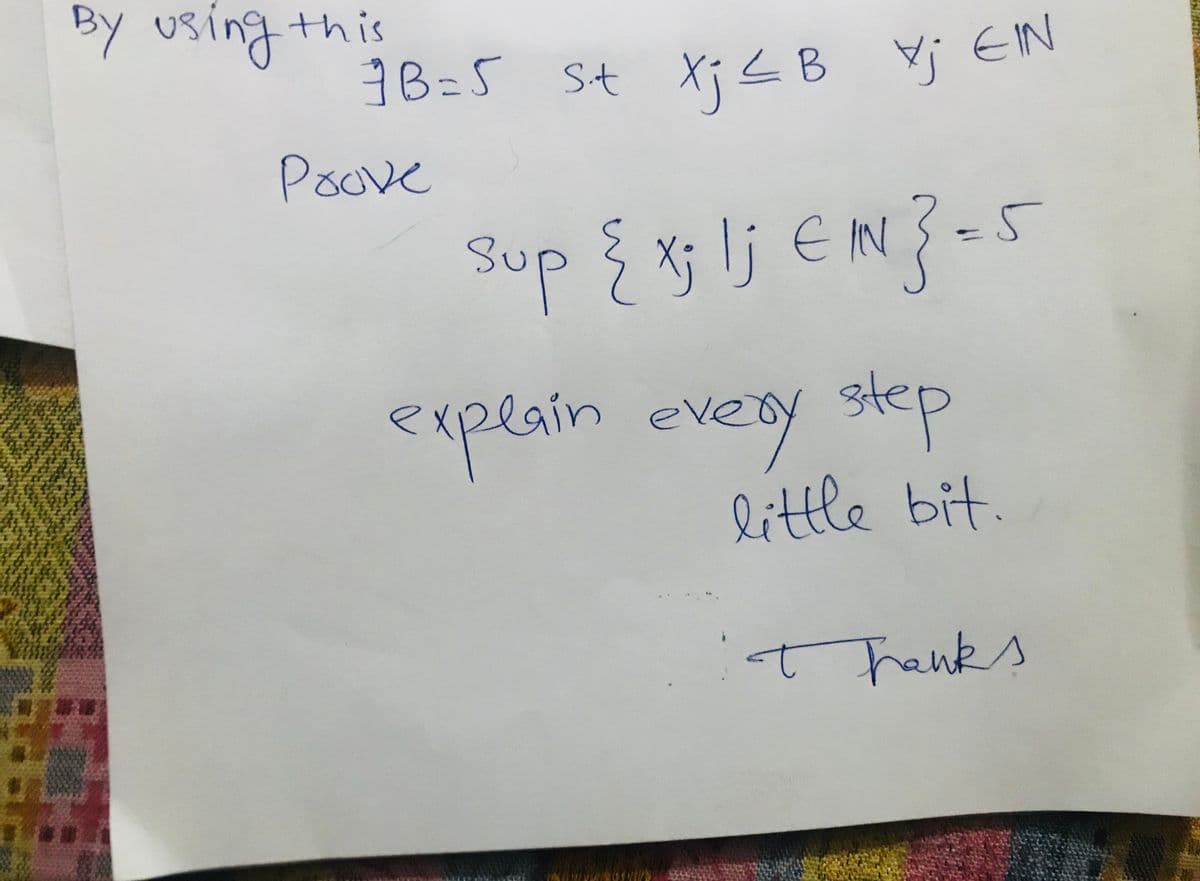 By using this
∃B=5 S.t Xj ≤ B ∀j ∈ IN
Proove
Sup { Xj | j ∈ IN } = 5
explain every step
little bit.
t Thanks